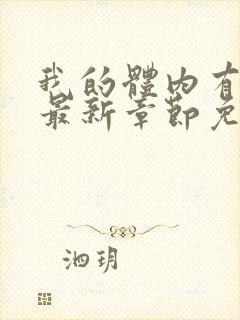 我的體内有
最新章節免
泗玥